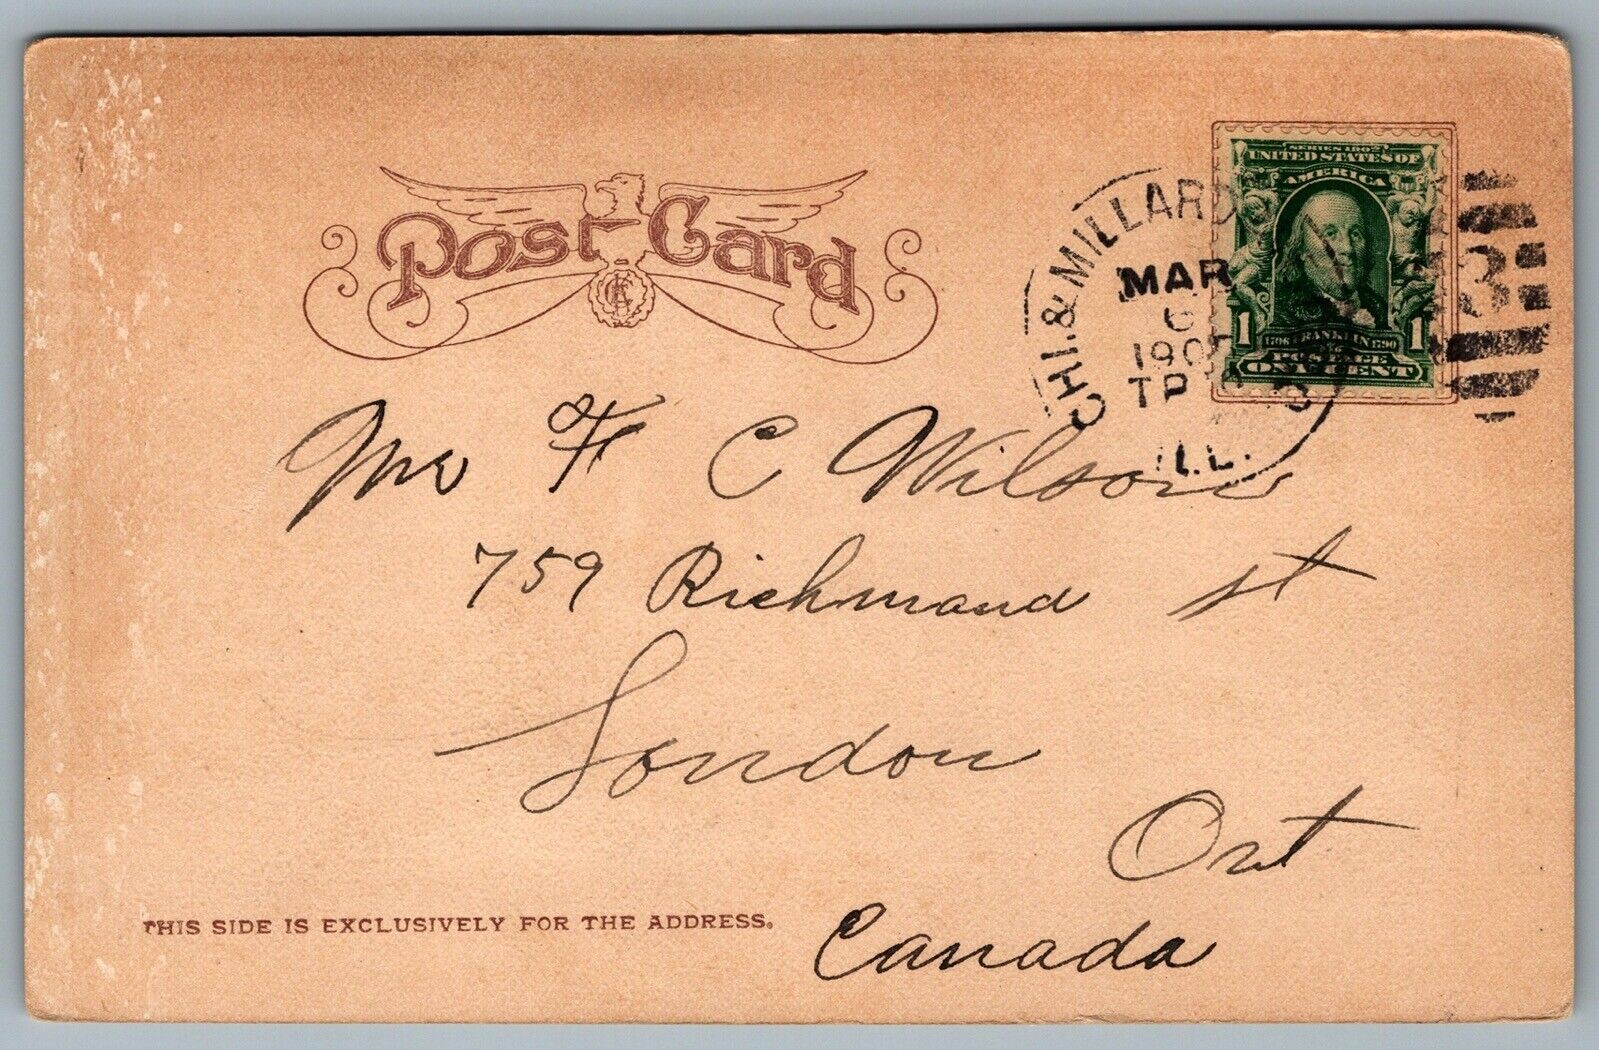 Post Card
CHI. & MILLARD
MAR
6
190
TP
ILL.
SERIES 1902
UNITED STATES OF
AMERICA
1 1
1706 FRANKLIN 1790
POSTAGE
ONE CENT
3
Mr F C Wilson
759 Richmond st
London
Ont
Canada
THIS SIDE IS EXCLUSIVELY FOR THE ADDRESS.